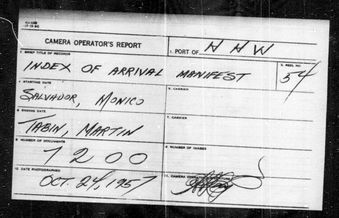 CAMERA OPERATOR'S REPORT
1. PORT OF HHW
2. BRIEF TITLE OF RECORDS
INDEX OF ARRIVAL MANIFEST
3. REEL NO.
54
4. STARTING DATE
SALVADOR, MONICO
5. CARRIER
6. ENDING DATE
TABIN, MARTIN
7. CARRIER
8. NUMBER OF DOCUMENTS
7200
9. NUMBER OF IMAGES
10. DATE PHOTOGRAPHED
OCT. 24, 1957
11. CAMERA